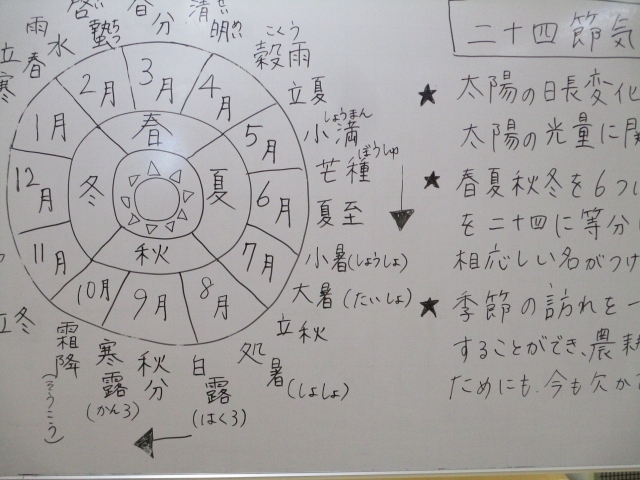 二十四節気
★ 太陽の日長変化
太陽の光量に
★ 春夏秋冬を6つ
を二十四に等分
相応しい名がつけ
★ 季節の訪れを一
することができ、農耕
ためにも、今も欠か
春
夏
秋
冬
1月
2月
3月
4月
5月
6月
7月
8月
9月
10月
11月
12月
立春
雨水
啓蟄
春分
清明
穀雨
こくう
立夏
小満
しょうまん
芒種
ぼうしゅ
夏至
小暑(しょうしょ)
大暑(たいしょ)
立秋
処暑
(しょしょ)
白露
(はくろ)
秋分
寒露
(かんろ)
霜降
(そうこう)
立冬
寒